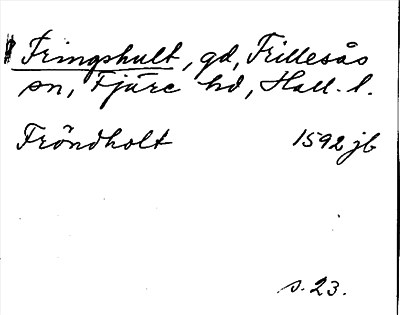 Fringshult, gd, Frillesås
sn, Fjäre hd, Hall. l.
Fröndholt 1592 jb
s. 23.